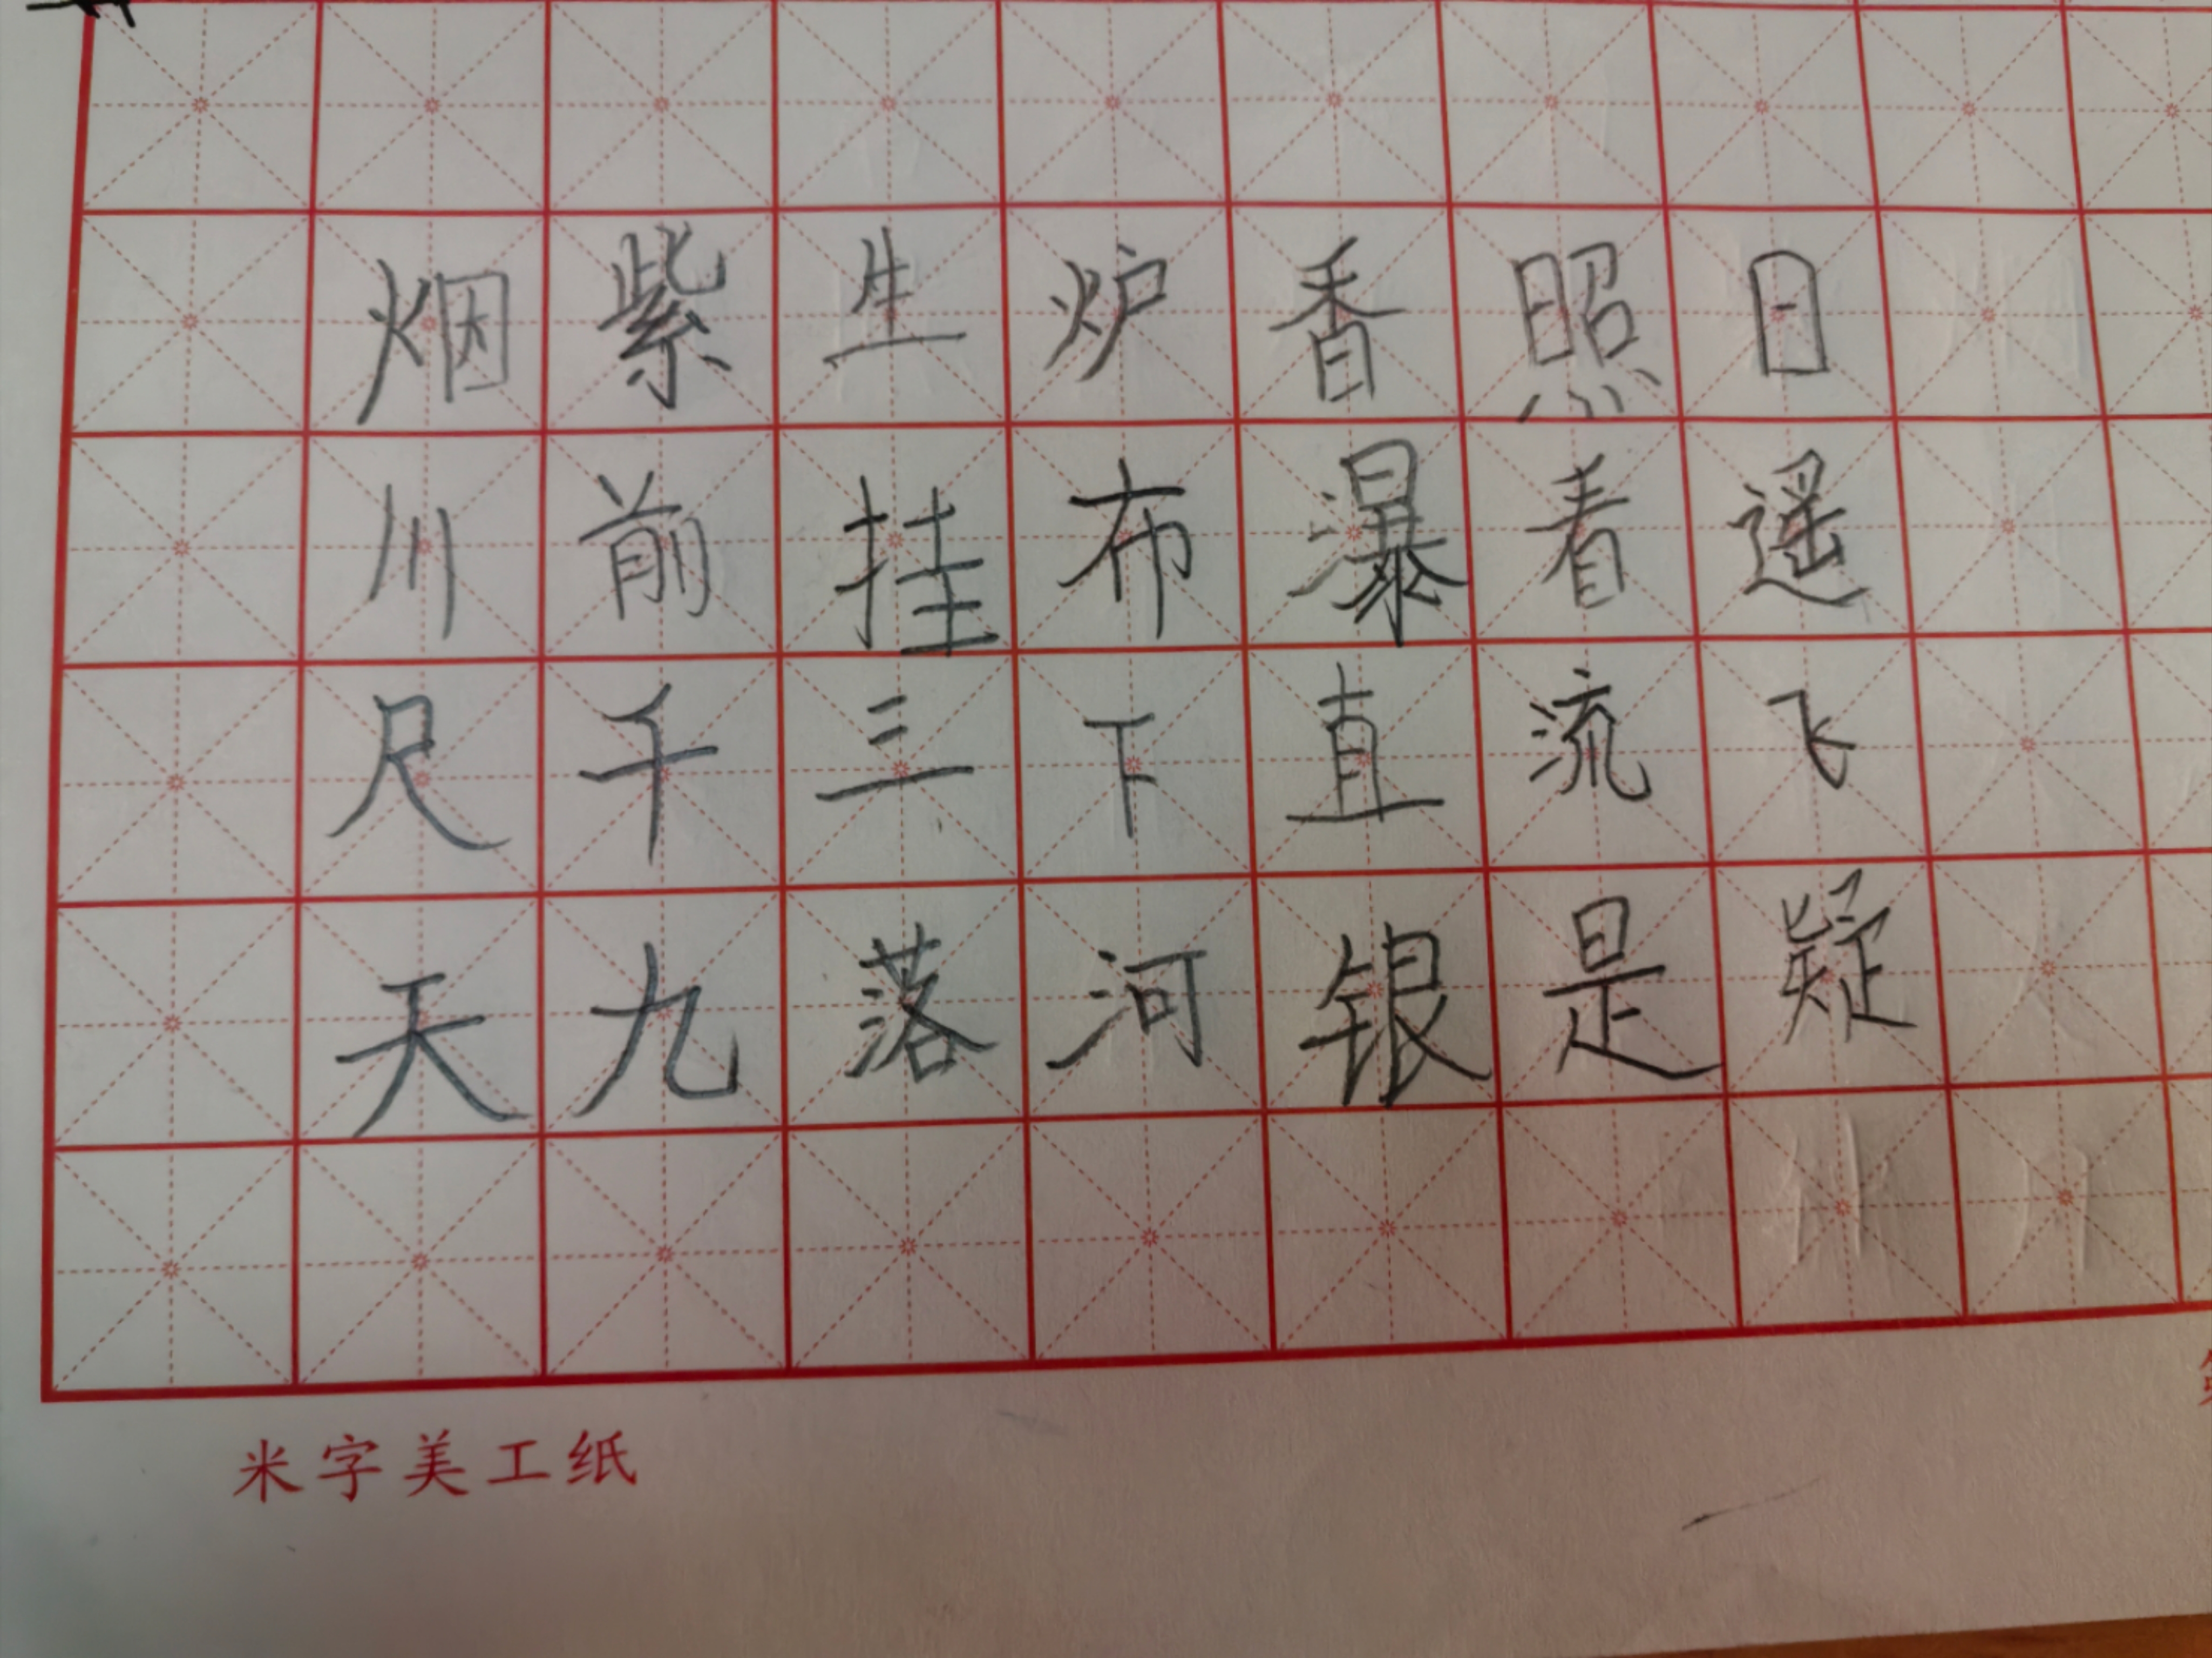 日照香炉生紫烟
遥看瀑布挂前川
飞流直下三千尺
疑是银河落九天
米字美工纸